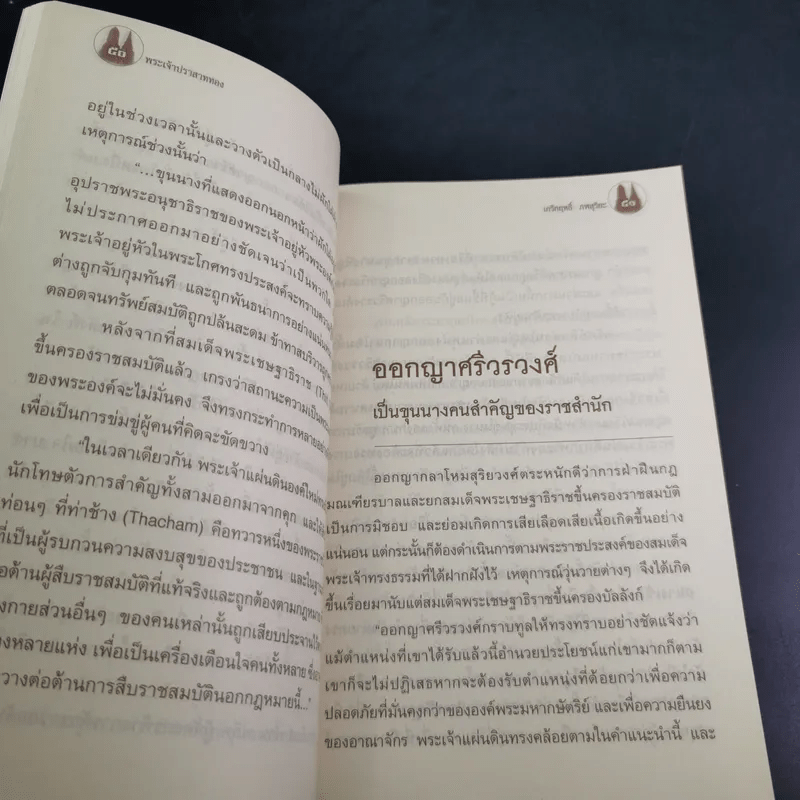 ๔๐
พระเจ้าปราสาททอง
อยู่ในช่วงเวลานั้นและวางตัวเป็นกลางไม่ฝักใฝ่
เหตุการณ์ช่วงนั้นว่า
“...ขุนนางที่แสดงออกนอกหน้าว่าฝักใฝ่
อุปราชพระอนุชาธิราชของพระเจ้าอยู่หัวพระองค์
ไม่ประกาศออกมาอย่างชัดเจนว่าเป็นพวกใด
พระเจ้าอยู่หัวในพระโกศทรงประสงค์จะทราบความ
ต่างถูกจับกุมทันที และถูกพันธนาการอย่างแน่นหนา
ตลอดจนทรัพย์สมบัติถูกปล้นสะดม ข้าทาสบริวารถูก
หลังจากที่สมเด็จพระเชษฐาธิราช
ขึ้นครองราชสมบัติแล้ว เกรงว่าสถานะความเป็น
ของพระองค์จะไม่มั่นคง จึงทรงกระทำการหลายอย่าง
เพื่อเป็นการข่มขู่ผู้คนที่คิดจะขัดขวาง
“ในเวลาเดียวกัน พระเจ้าแผ่นดินองค์ใหม่
นักโทษตัวการสำคัญทั้งสามออกมาจากคุก และ
ท่อนๆ ที่ท่าช้าง (Thacham) คือทวารหนึ่งของพระ
ที่เป็นผู้รบกวนความสงบสุขของประชาชน และใน
ต่อต้านผู้สืบราชสมบัติที่แท้จริงและถูกต้องตามกฎหมาย
งกายส่วนอื่นๆ ของคนเหล่านั้นถูกเสียบประจานไว้
องหลายแห่ง เพื่อเป็นเครื่องเตือนใจคนทั้งหลาย
วางต่อต้านการสืบราชสมบัตินอกกฎหมายนี้...”
เกริกฤทธิ์ ภพสุริยะ
๔๑
ออกญาศรีวรวงศ์
เป็นขุนนางคนสำคัญของราชสำนัก
ออกญากลาโหมสุริยวงศ์ตระหนักดีว่าการฝ่าฝืนกฎ
มณเฑียรบาลและยกสมเด็จพระเชษฐาธิราชขึ้นครองราชสมบัติ
เป็นการมิชอบ และย่อมเกิดการเสียเลือดเสียเนื้อเกิดขึ้นอย่าง
แน่นอน แต่กระนั้นก็ต้องดำเนินการตามพระราชประสงค์ของสมเด็จ
พระเจ้าทรงธรรมที่ได้ฝากฝังไว้ เหตุการณ์วุ่นวายต่างๆ จึงได้เกิด
ขึ้นเรื่อยมานับแต่สมเด็จพระเชษฐาธิราชขึ้นครองบัลลังก์
“ออกญาศรีวรวงศ์กราบทูลให้ทรงทราบอย่างชัดแจ้งว่า
แม้ตำแหน่งที่เขาได้รับแล้วนี้อำนวยประโยชน์แก่เขามากก็ตาม
เขาก็จะไม่ปฏิเสธหากจะต้องรับตำแหน่งที่ด้อยกว่าเพื่อความ
ปลอดภัยที่มั่นคงกว่าขององค์พระมหากษัตริย์ และเพื่อความยืนยง
ของอาณาจักร พระเจ้าแผ่นดินทรงคล้อยตามในคำแนะนำนี้ และ